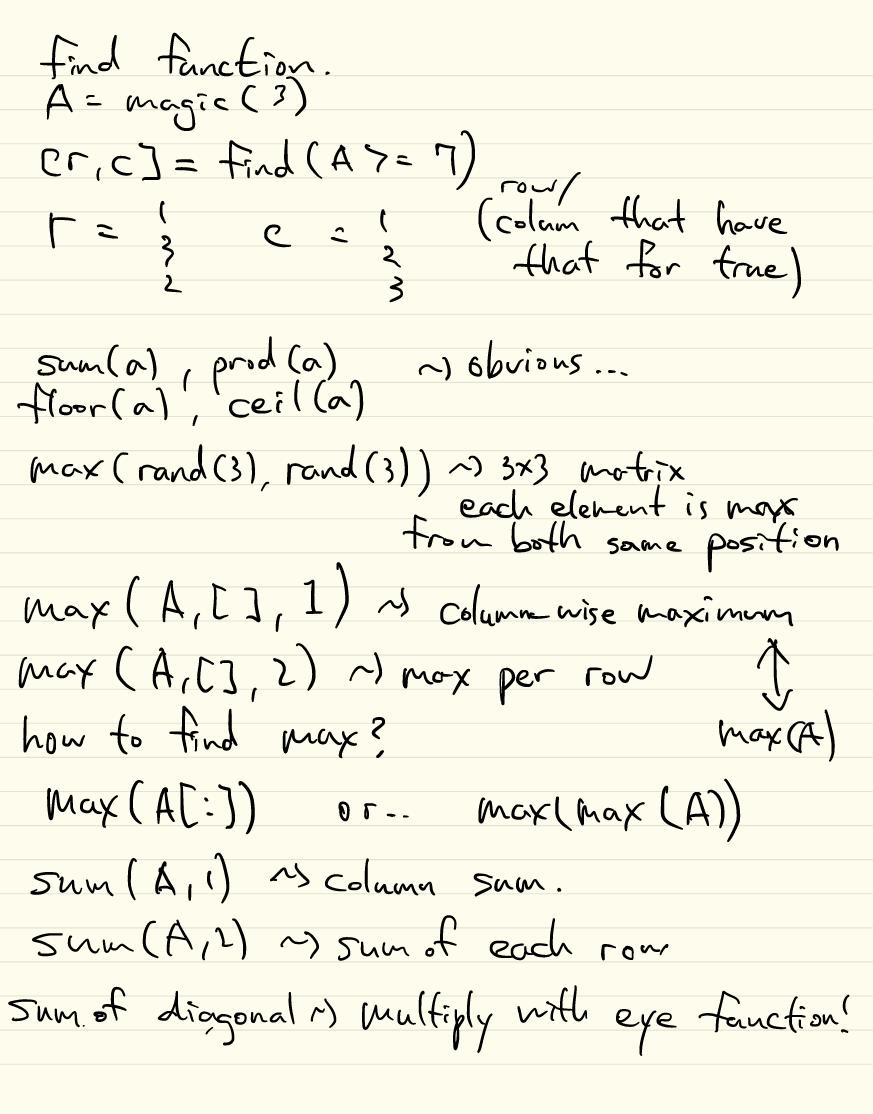 find function.
A = magic(3)
[r,c] = find(A >= 7)
r = 1 3 2   c = 1 2 3   (row/ colum that have that for true)
sum(a), prod(a) ~> obvious...
floor(a), ceil(a)
max(rand(3), rand(3)) ~> 3x3 matrix
each element is max
from both same position
max(A,[],1) ~> column-wise maximum
↕
max(A,[],2) ~> max per row
how to find max?   max(A)
max(A[:])   or..   max(max(A))
sum(A,1) ~> column sum.
sum(A,2) ~> sum of each row
sum of diagonal ~> multiply with eye function!